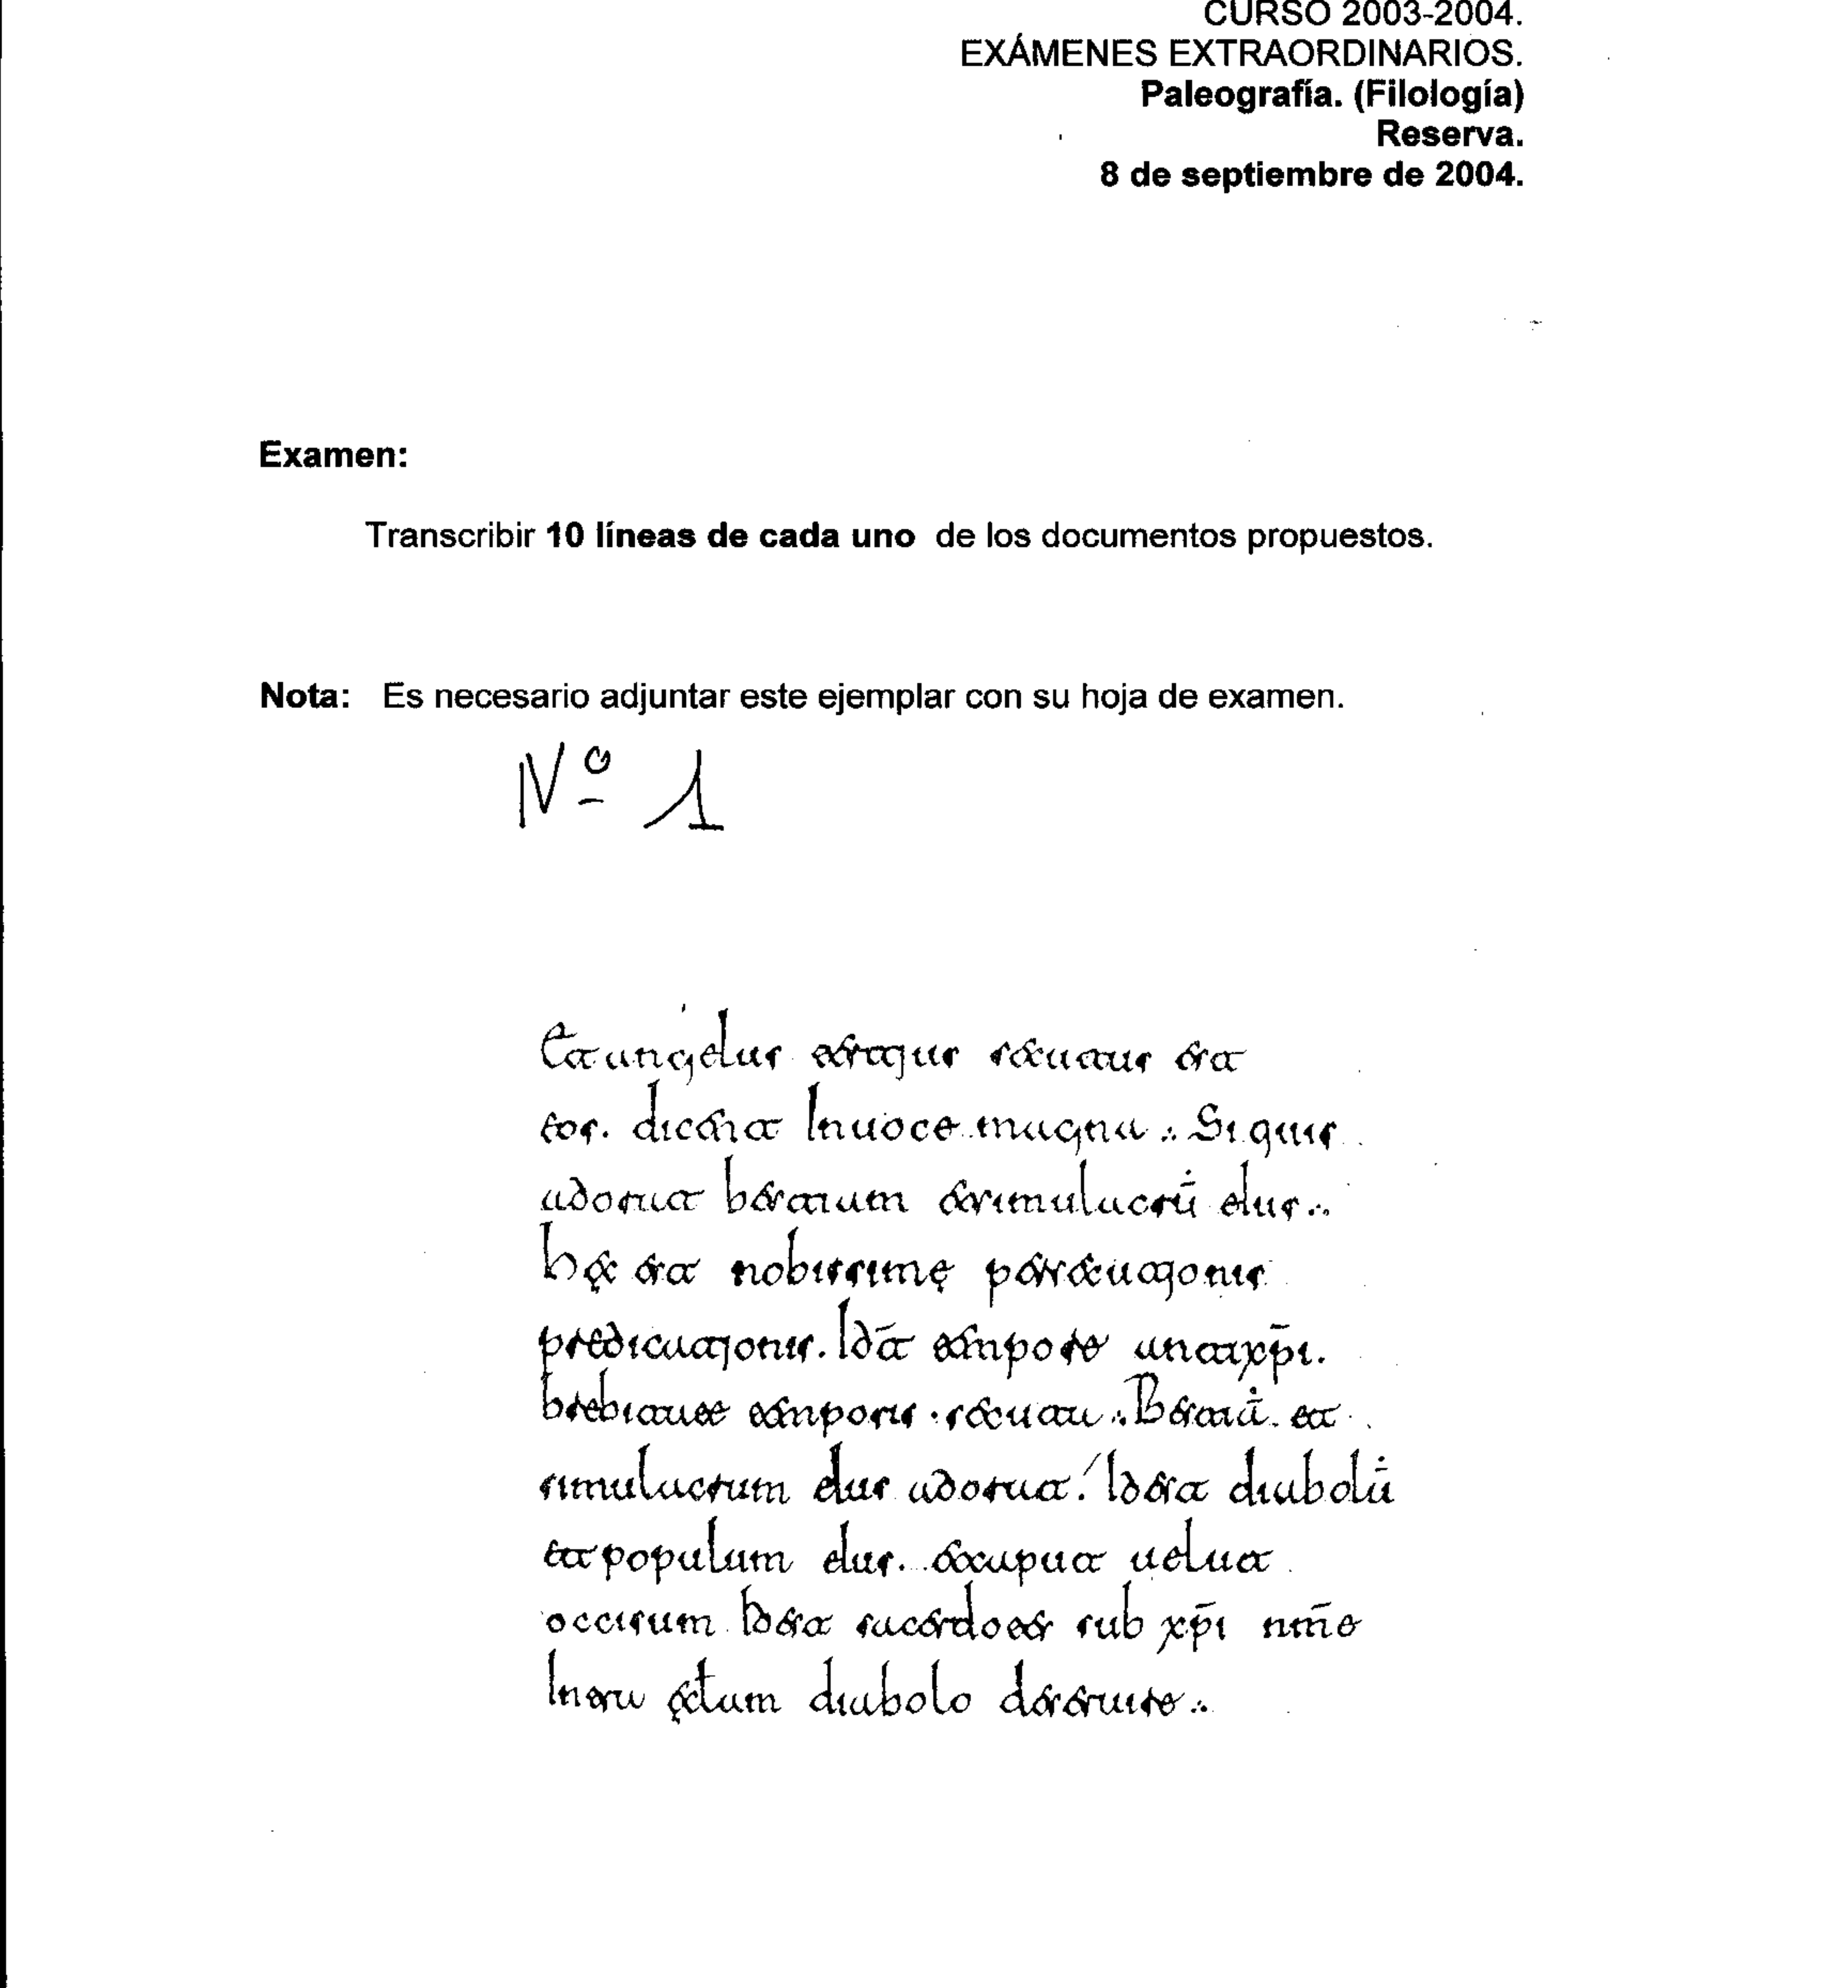 CURSO 2003-2004.
EXÁMENES EXTRAORDINARIOS.
Paleografía. (Filología)
Reserva.
8 de septiembre de 2004.
Examen:
Transcribir 10 líneas de cada uno de los documentos propuestos.
Nota: Es necesario adjuntar este ejemplar con su hoja de examen.
Nº 1
Et angelus tertjus secutus est
eos. dicent Inuoce magna :. Si quis
adorat bestiam et simulacrū eius :.
hęc est nobissimę persecutjonis
predicatjonis. Id t̄ tempore antixp̄i.
brebitate temporis . secuta :. Bestiā. et
simulacrum eius adorat. Idest diabolū
et populum eius. et caput uelut
occisum Idest sacerdotes sub xp̄i nm̄e
Intra ęclam diabolo deseruire :.